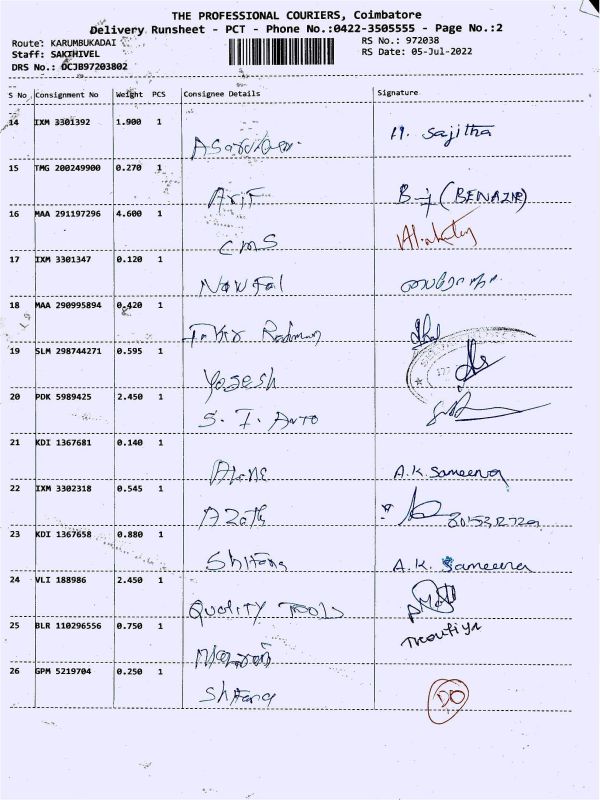 THE PROFESSIONAL COURIERS, Coimbatore
Delivery Runsheet - PCT - Phone No.:0422-3505555 - Page No.:2
Route: KARUMBUKADAI RS No.: 972038
Staff: SAKTHIVEL RS Date: 05-Jul-2022
DRS No.: DCJB97203802
S No Consignment No Weight PCS Consignee Details Signature
14 IXM 3301392 1.900 1
H. Sajitha
15 TMG 200249900 0.270 1
Arif (BENAZIR)
16 MAA 291197296 4.600 1
CMS
17 IXM 3301347 0.120 1
Nowfal
18 MAA 290995894 0.420 1
19 SLM 298744271 0.595 1
Yogesh
20 PDK 5989425 2.450 1
S. I. Auto
21 KDI 1367681 0.140 1
A.K. Sameena
22 IXM 3302318 0.545 1
Azath
23 KDI 1367658 0.880 1
Shifana A.K. Sameena
24 VLI 188986 2.450 1
QUALITY TOOLS
25 BLR 110296556 0.750 1
26 GPM 5219704 0.250 1
Shifana DO